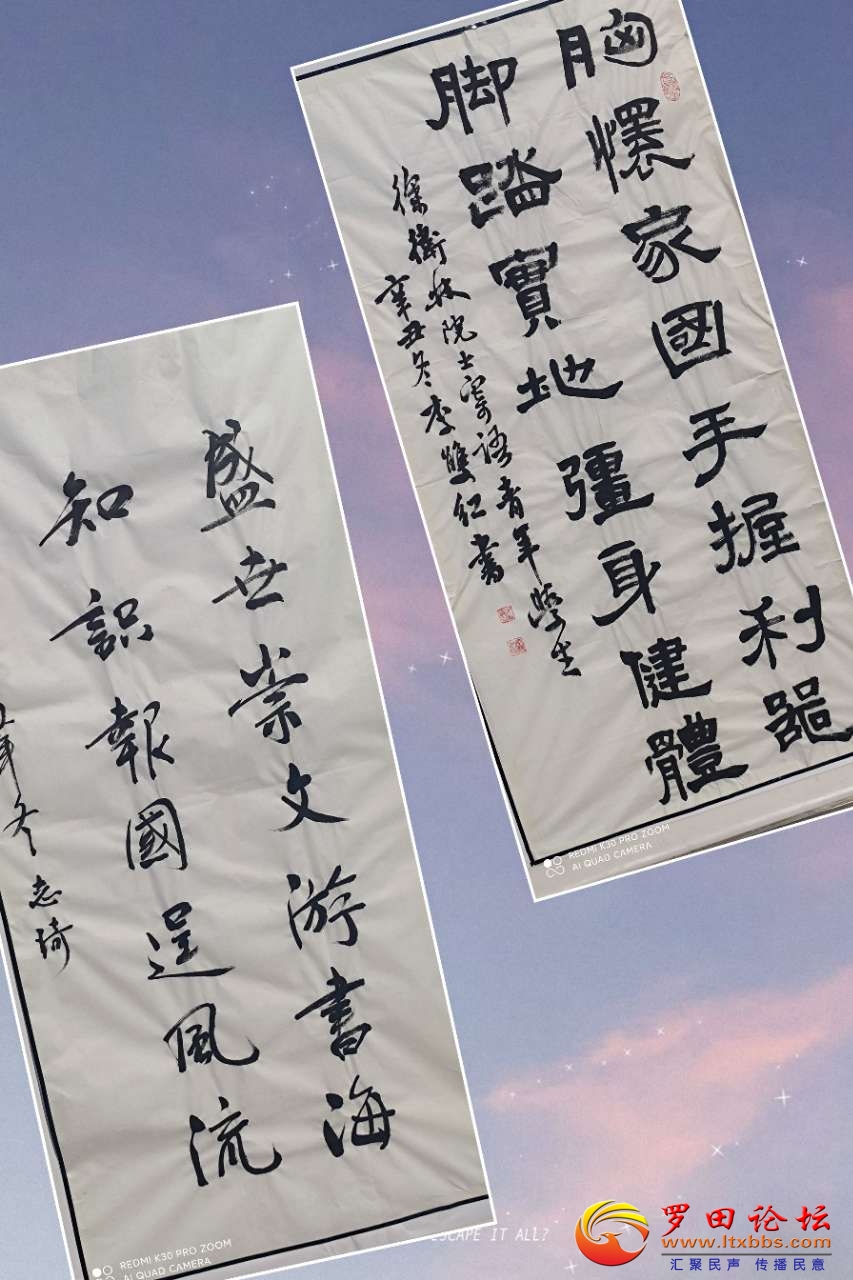 胸懷家國手握利器
脚踏實地彊身健體
徐衛林院士寄語青年學生
辛丑冬李雙紅書
REDMI K30 PRO ZOOM
AI QUAD CAMERA
盛世崇文游書海
知識報國逞風流
年冬志琦
REDMI K30 PRO ZOOM
AI QUAD CAMERA
ESCAPE IT ALL?
罗田论坛
www.ltxbbs.com
汇聚民声 传播民意